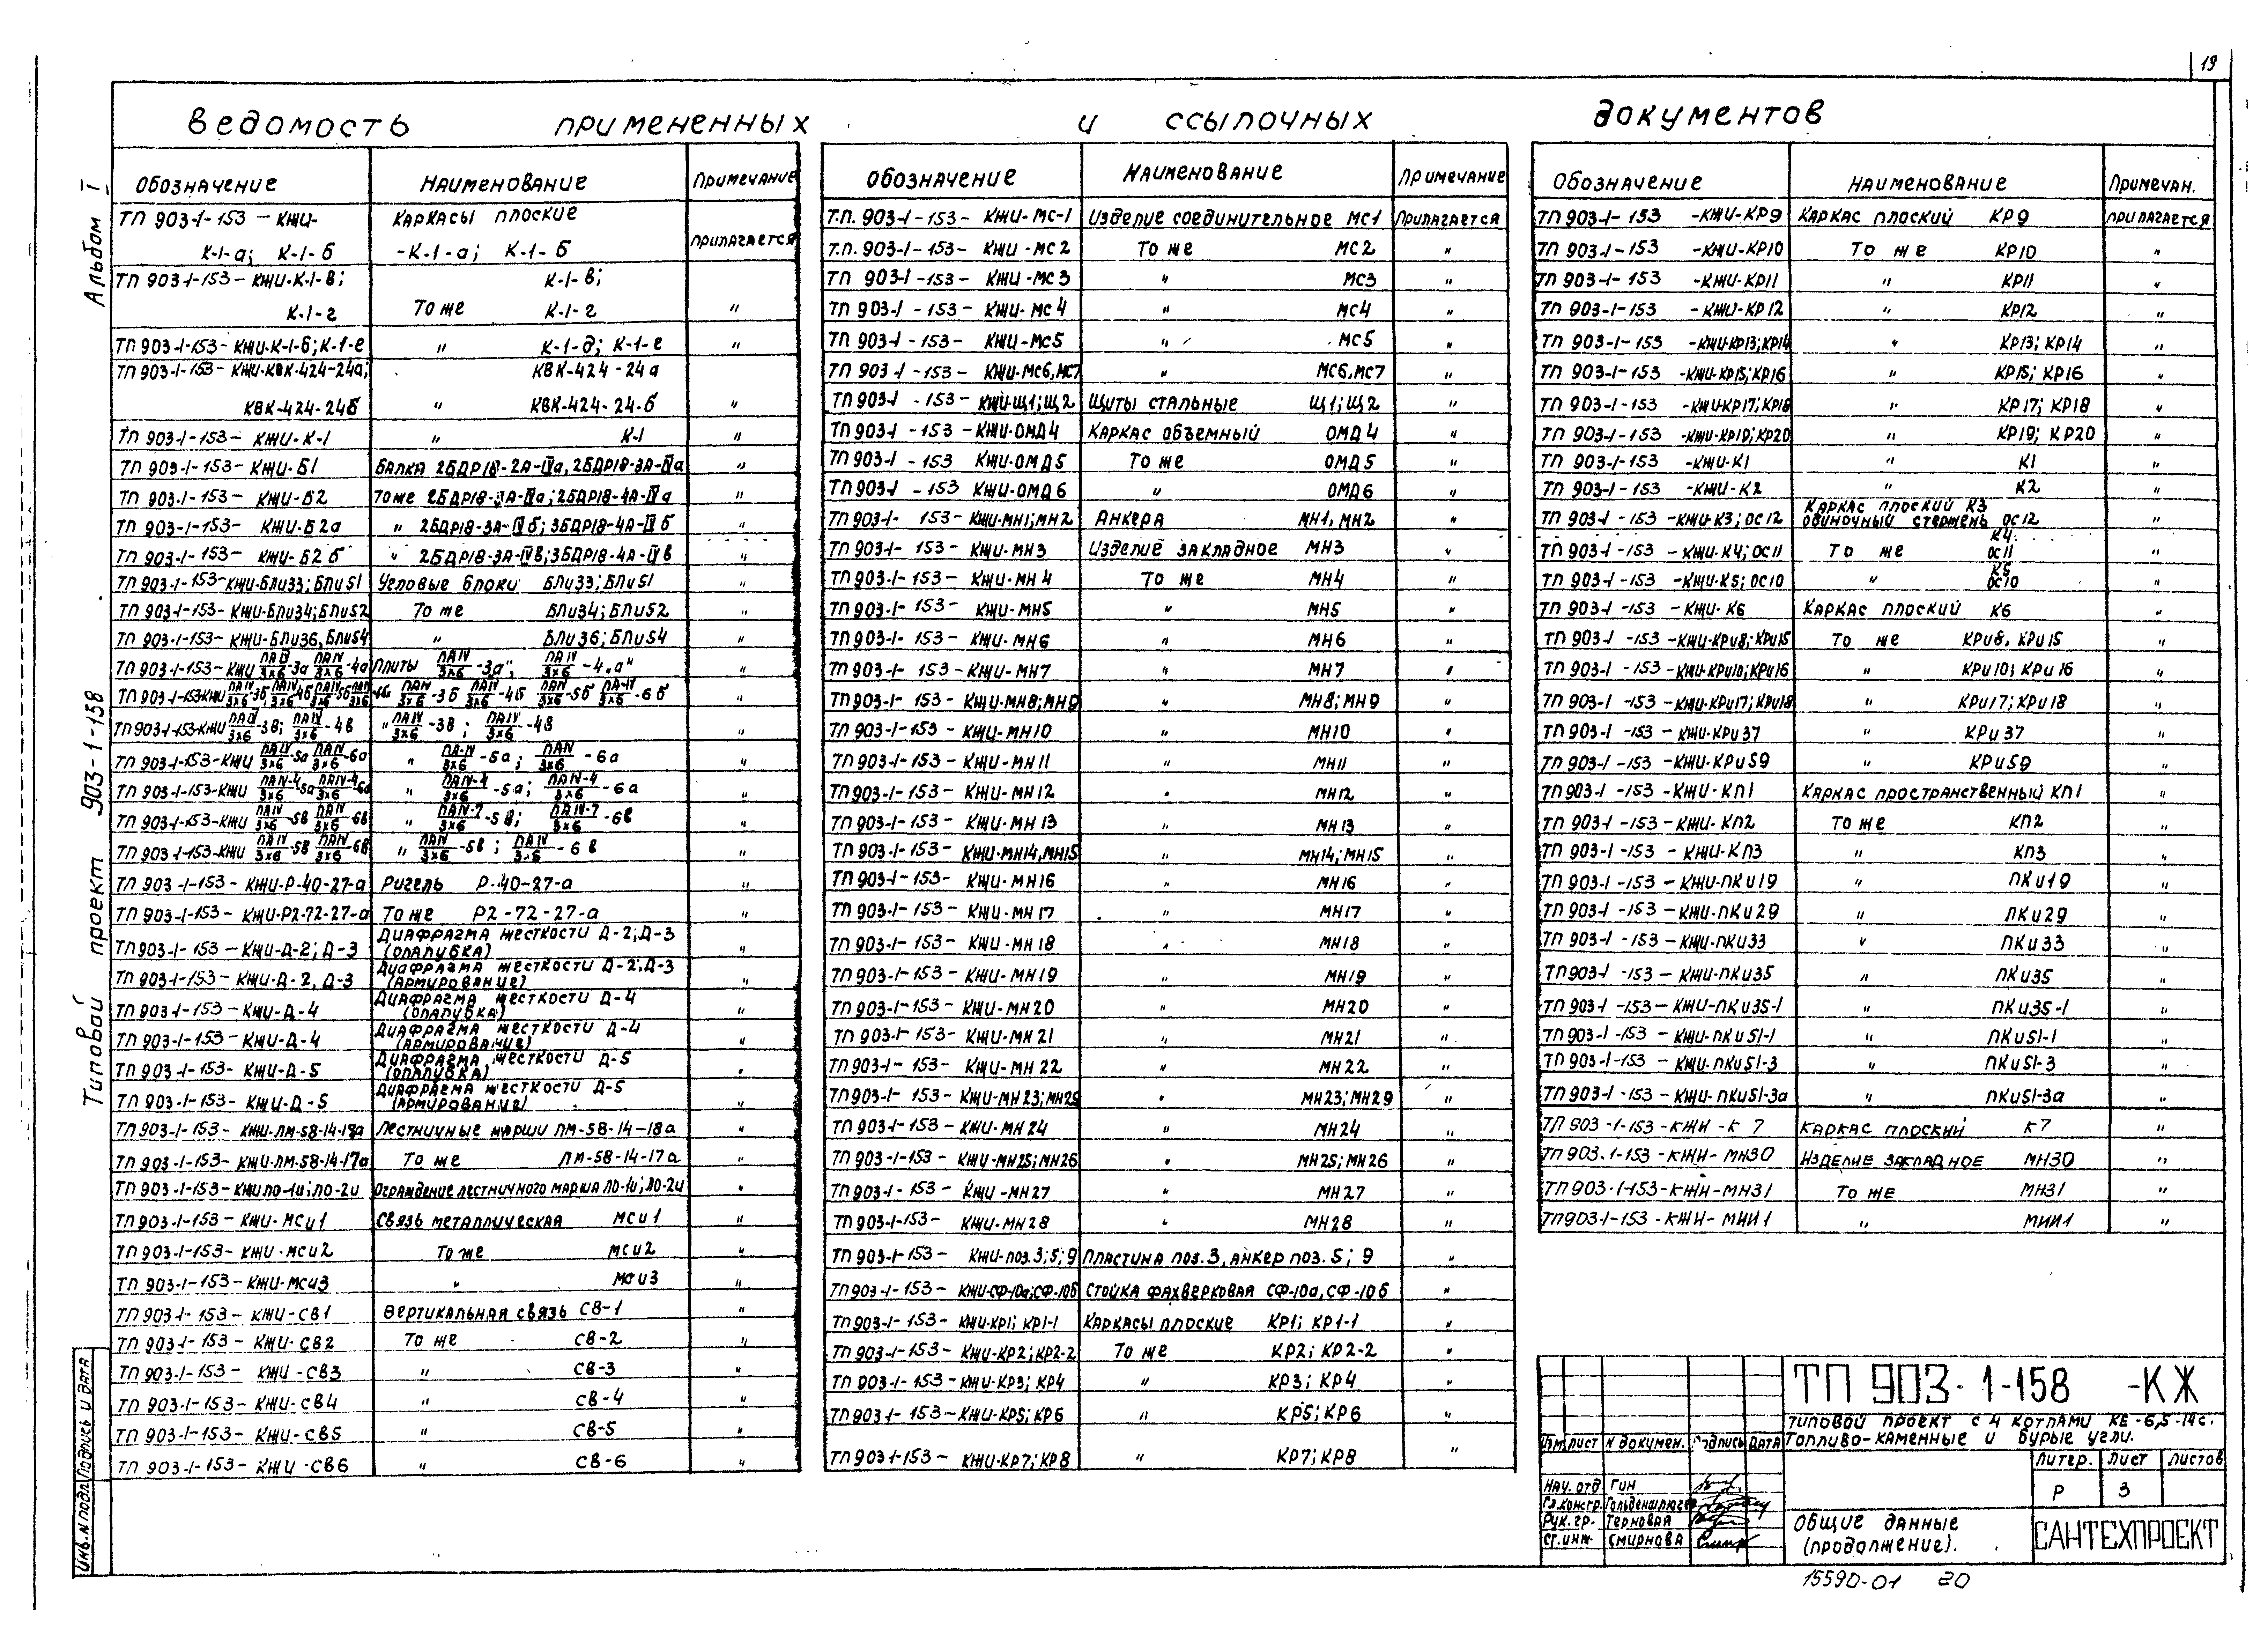 19
Ведомость примененных и ссылочных документов
Альбом I
Типовой проект 903-1-158
Инв. N подл. Подпись и дата
Обозначение Наименование Примечание
ТП 903-1-153 - КЖИ- Каркасы плоские
К-1-а; К-1-б -К-1-а; К-1-б прилагается
ТП 903-1-153 - КЖИ-К-1-в; К-1-в;
К-1-г То же К-1-г "
ТП 903-1-153 - КЖИ-К-1-б; К-1-е " К-1-д; К-1-е "
ТП 903-1-153 - КЖИ-КВК-424-24а; КВК-424-24а
КВК-424-24б " КВК-424-24-б "
ТП 903-1-153 - КЖИ-К-1 " К-1 "
ТП 903-1-153 - КЖИ-Б1 Балка 2БДР18-2А-IVа, 2БДР18-3А-IVа "
ТП 903-1-153 - КЖИ-Б2 То же 2БДР18-3А-IVа; 2БДР18-4А-IVа "
ТП 903-1-153 - КЖИ-Б2а " 2БДР18-3А-IVб; 3БДР18-4А-IVб "
ТП 903-1-153 - КЖИ-Б2б " 2БДР18-3А-IVв; 3БДР18-4А-IVв "
ТП 903-1-153-КЖИ-БЛИ33; БЛИ51 Угловые блоки БЛИ33; БЛИ51 "
ТП 903-1-153-КЖИ-БЛИ34; БЛИ52 То же БЛИ34; БЛИ52 "
ТП 903-1-153-КЖИ-БЛИ36, БЛИ54 " БЛИ36; БЛИ54 "
ТП 903-1-153-КЖИ ПАIV/3х6-3а ПАIV/3х6-4а Плиты ПАIV/3х6-3а", ПАIV/3х6-4"а" "
ТП 903-1-153-КЖИ ПАIV/3х6-3б ПАIV/3х6-4б ПАIV/3х6-5б ПАIV/3х6-6б ПАIV/3х6-3б ПАIV/3х6-4б ПАIV/3х6-5б ПА-IV/3х6-6б "
ТП 903-1-153-КЖИ ПАIV/3х6-3в; ПАIV/3х6-4в " ПАIV/3х6-3в; ПАIV/3х6-4в "
ТП 903-1-153-КЖИ ПАIV/3х6-5а ПАIV/3х6-6а " ПА-IV/3х6-5а; ПАIV/3х6-6а "
ТП 903-1-153-КЖИ ПАIV-4/3х6-5а ПАIV-4/3х6-6а " ПАIV-4/3х6-5а; ПАIV-4/3х6-6а "
ТП 903-1-153-КЖИ ПАIV/3х6-5в ПАIV/3х6-6в " ПАIV-7/3х6-5в; ПАIV-7/3х6-6в "
ТП 903-1-153-КЖИ ПАIV/3х6-5в ПАIV/3х6-6в " ПАIV/3х6-5в; ПАIV/3х6-6в "
ТП 903-1-153 - КЖИ-Р-40-27-а Ригель Р-40-27-а "
ТП 903-1-153 - КЖИ-Р2-72-27-а То же Р2-72-27-а "
ТП 903-1-153 - КЖИ-Д-2; Д-3 Диафрагма жесткости Д-2; Д-3 (опалубка) "
ТП 903-1-153 - КЖИ-Д-2, Д-3 Диафрагма жесткости Д-2; Д-3 (армирование) "
ТП 903-1-153 - КЖИ-Д-4 Диафрагма жесткости Д-4 (опалубка) "
ТП 903-1-153 - КЖИ-Д-4 Диафрагма жесткости Д-4 (армирование) "
ТП 903-1-153 - КЖИ-Д-5 Диафрагма жесткости Д-5 (опалубка) "
ТП 903-1-153 - КЖИ-Д-5 Диафрагма жесткости Д-5 (армирование) "
ТП 903-1-153 - КЖИ-ЛМ-58-14-18а Лестничные марши ЛМ-58-14-18а "
ТП 903-1-153 - КЖИ-ЛМ-58-14-17а То же ЛМ-58-14-17а "
ТП 903-1-153 - КЖИ ЛО-1и; ЛО-2и Ограждение лестничного марша ЛО-1и; ЛО-2и "
ТП 903-1-153 - КЖИ-МСи1 Связь металлическая МСи1 "
ТП 903-1-153 - КЖИ-МСи2 То же МСи2 "
ТП 903-1-153 - КЖИ-МСи3 " МСи3 "
ТП 903-1-153 - КЖИ-СВ1 Вертикальная связь СВ-1 "
ТП 903-1-153 - КЖИ-СВ2 То же СВ-2 "
ТП 903-1-153 - КЖИ-СВ3 " СВ-3 "
ТП 903-1-153 - КЖИ-СВ4 " СВ-4 "
ТП 903-1-153 - КЖИ-СВ5 " СВ-5 "
ТП 903-1-153 - КЖИ-СВ6 " СВ-6 "
Обозначение Наименование Примечание
Т.П. 903-1-153 - КЖИ-МС-1 Изделие соединительное МС1 Прилагается
Т.П. 903-1-153 - КЖИ-МС2 То же МС2 "
ТП 903-1-153 - КЖИ-МС3 " МС3 "
ТП 903-1-153 - КЖИ-МС4 " МС4 "
ТП 903-1-153 - КЖИ-МС5 " МС5 "
ТП 903-1-153 - КЖИ-МС6, МС7 " МС6, МС7 "
ТП 903-1-153 - КЖИ-Щ1; Щ2 Щиты стальные Щ1; Щ2 "
ТП 903-1-153 - КЖИ-ОМД4 Каркас объемный ОМД4 "
ТП 903-1-153 КЖИ-ОМД5 То же ОМД5 "
ТП 903-1-153 КЖИ-ОМД6 " ОМД6 "
ТП 903-1-153 - КЖИ-МН1; МН2 Анкера МН1, МН2 "
ТП 903-1-153 - КЖИ-МН3 Изделие закладное МН3 "
ТП 903-1-153 - КЖИ-МН4 То же МН4 "
ТП 903-1-153 - КЖИ-МН5 " МН5 "
ТП 903-1-153 - КЖИ-МН6 " МН6 "
ТП 903-1-153 - КЖИ-МН7 " МН7 "
ТП 903-1-153 - КЖИ-МН8; МН9 " МН8; МН9 "
ТП 903-1-153 - КЖИ-МН10 " МН10 "
ТП 903-1-153 - КЖИ-МН11 " МН11 "
ТП 903-1-153 - КЖИ-МН12 " МН12 "
ТП 903-1-153 - КЖИ-МН13 " МН13 "
ТП 903-1-153 - КЖИ-МН14, МН15 " МН14; МН15 "
ТП 903-1-153 - КЖИ-МН16 " МН16 "
ТП 903-1-153 - КЖИ-МН17 " МН17 "
ТП 903-1-153 - КЖИ-МН18 " МН18 "
ТП 903-1-153 - КЖИ-МН19 " МН19 "
ТП 903-1-153 - КЖИ-МН20 " МН20 "
ТП 903-1-153 - КЖИ-МН21 " МН21 "
ТП 903-1-153 - КЖИ-МН22 " МН22 "
ТП 903-1-153 - КЖИ-МН23; МН29 " МН23; МН29 "
ТП 903-1-153 - КЖИ-МН24 " МН24 "
ТП 903-1-153 - КЖИ-МН25; МН26 " МН25; МН26 "
ТП 903-1-153 - КЖИ-МН27 " МН27 "
ТП 903-1-153 - КЖИ-МН28 " МН28 "
ТП 903-1-153 - КЖИ-поз.3; 5; 9 Пластина поз.3, анкер поз.5; 9 "
ТП 903-1-153 - КЖИ-СФ-10а; СФ-10б Стойка фахверковая СФ-10а, СФ-10б "
ТП 903-1-153 - КЖИ-КР1; КР1-1 Каркасы плоские КР1; КР1-1 "
ТП 903-1-153 - КЖИ-КР2; КР2-2 То же КР2; КР2-2 "
ТП 903-1-153 - КЖИ-КР3; КР4 " КР3; КР4 "
ТП 903-1-153 - КЖИ-КР5; КР6 " КР5; КР6 "
ТП 903-1-153 - КЖИ-КР7; КР8 " КР7; КР8 "
Обозначение Наименование Примечан.
ТП 903-1-153 -КЖИ-КР9 Каркас плоский КР9 прилагается
ТП 903-1-153 -КЖИ-КР10 То же КР10 "
ТП 903-1-153 -КЖИ-КР11 " КР11 "
ТП 903-1-153 -КЖИ-КР12 " КР12 "
ТП 903-1-153 -КЖИ-КР13; КР14 " КР13; КР14 "
ТП 903-1-153 -КЖИ-КР15; КР16 " КР15; КР16 "
ТП 903-1-153 -КЖИ-КР17; КР18 " КР17; КР18 "
ТП 903-1-153 -КЖИ-КР19; КР20 " КР19; КР20 "
ТП 903-1-153 -КЖИ-К1 " К1 "
ТП 903-1-153 -КЖИ-К2 " К2 "
ТП 903-1-153 -КЖИ-К3; ОС12 Каркас плоский К3 одиночный стержень ОС12 "
ТП 903-1-153 -КЖИ-К4; ОС11 То же К4 ОС11 "
ТП 903-1-153 -КЖИ-К5; ОС10 " К5 ОС10 "
ТП 903-1-153 -КЖИ-К6 Каркас плоский К6 "
ТП 903-1-153 -КЖИ-КРи8; КРи15 То же КРи8, КРи15 "
ТП 903-1-153 -КЖИ-КРи10; КРи16 " КРи10; КРи16 "
ТП 903-1-153 -КЖИ-КРи17; КРи18 " КРи17; КРи18 "
ТП 903-1-153 - КЖИ-КРи37 " КРи37 "
ТП 903-1-153 -КЖИ-КРи59 " КРи59 "
ТП 903-1-153 -КЖИ-КП1 Каркас пространственный КП1 "
ТП 903-1-153 -КЖИ-КП2 То же КП2 "
ТП 903-1-153 - КЖИ-КП3 " КП3 "
ТП 903-1-153 - КЖИ-ПКи19 " ПКи19 "
ТП 903-1-153 - КЖИ-ПКи29 " ПКи29 "
ТП 903-1-153 - КЖИ-ПКи33 " ПКи33 "
ТП 903-1-153 - КЖИ-ПКи35 " ПКи35 "
ТП 903-1-153 - КЖИ-ПКи35-1 " ПКи35-1 "
ТП 903-1-153 - КЖИ-ПКи51-1 " ПКи51-1 "
ТП 903-1-153 - КЖИ-ПКи51-3 " ПКи51-3 "
ТП 903-1-153 - КЖИ-ПКи51-3а " ПКи51-3а "
ТП 903-1-153-КЖИ-К7 Каркас плоский К7 "
ТП 903-1-153-КЖИ-МН30 Изделие закладное МН30 "
ТП 903-1-153-КЖИ-МН31 То же МН31 "
ТП 903-1-153-КЖИ-МИИ1 " МИИ1 "
ТП 903-1-158 -КЖ
Типовой проект с 4 котлами КЕ-6,5-14с.
Топливо-каменные и бурые угли.
Изм Лист N докумен. Подпись Дата
Литер. Лист Листов
Р 3
Нач. отд Гин
Гл.констр. Гольденшлюгер
Рук. гр. Терновая
Ст. инж Смирнова
Общие данные
(продолжение).
САНТЕХПРОЕКТ
15590-01 20